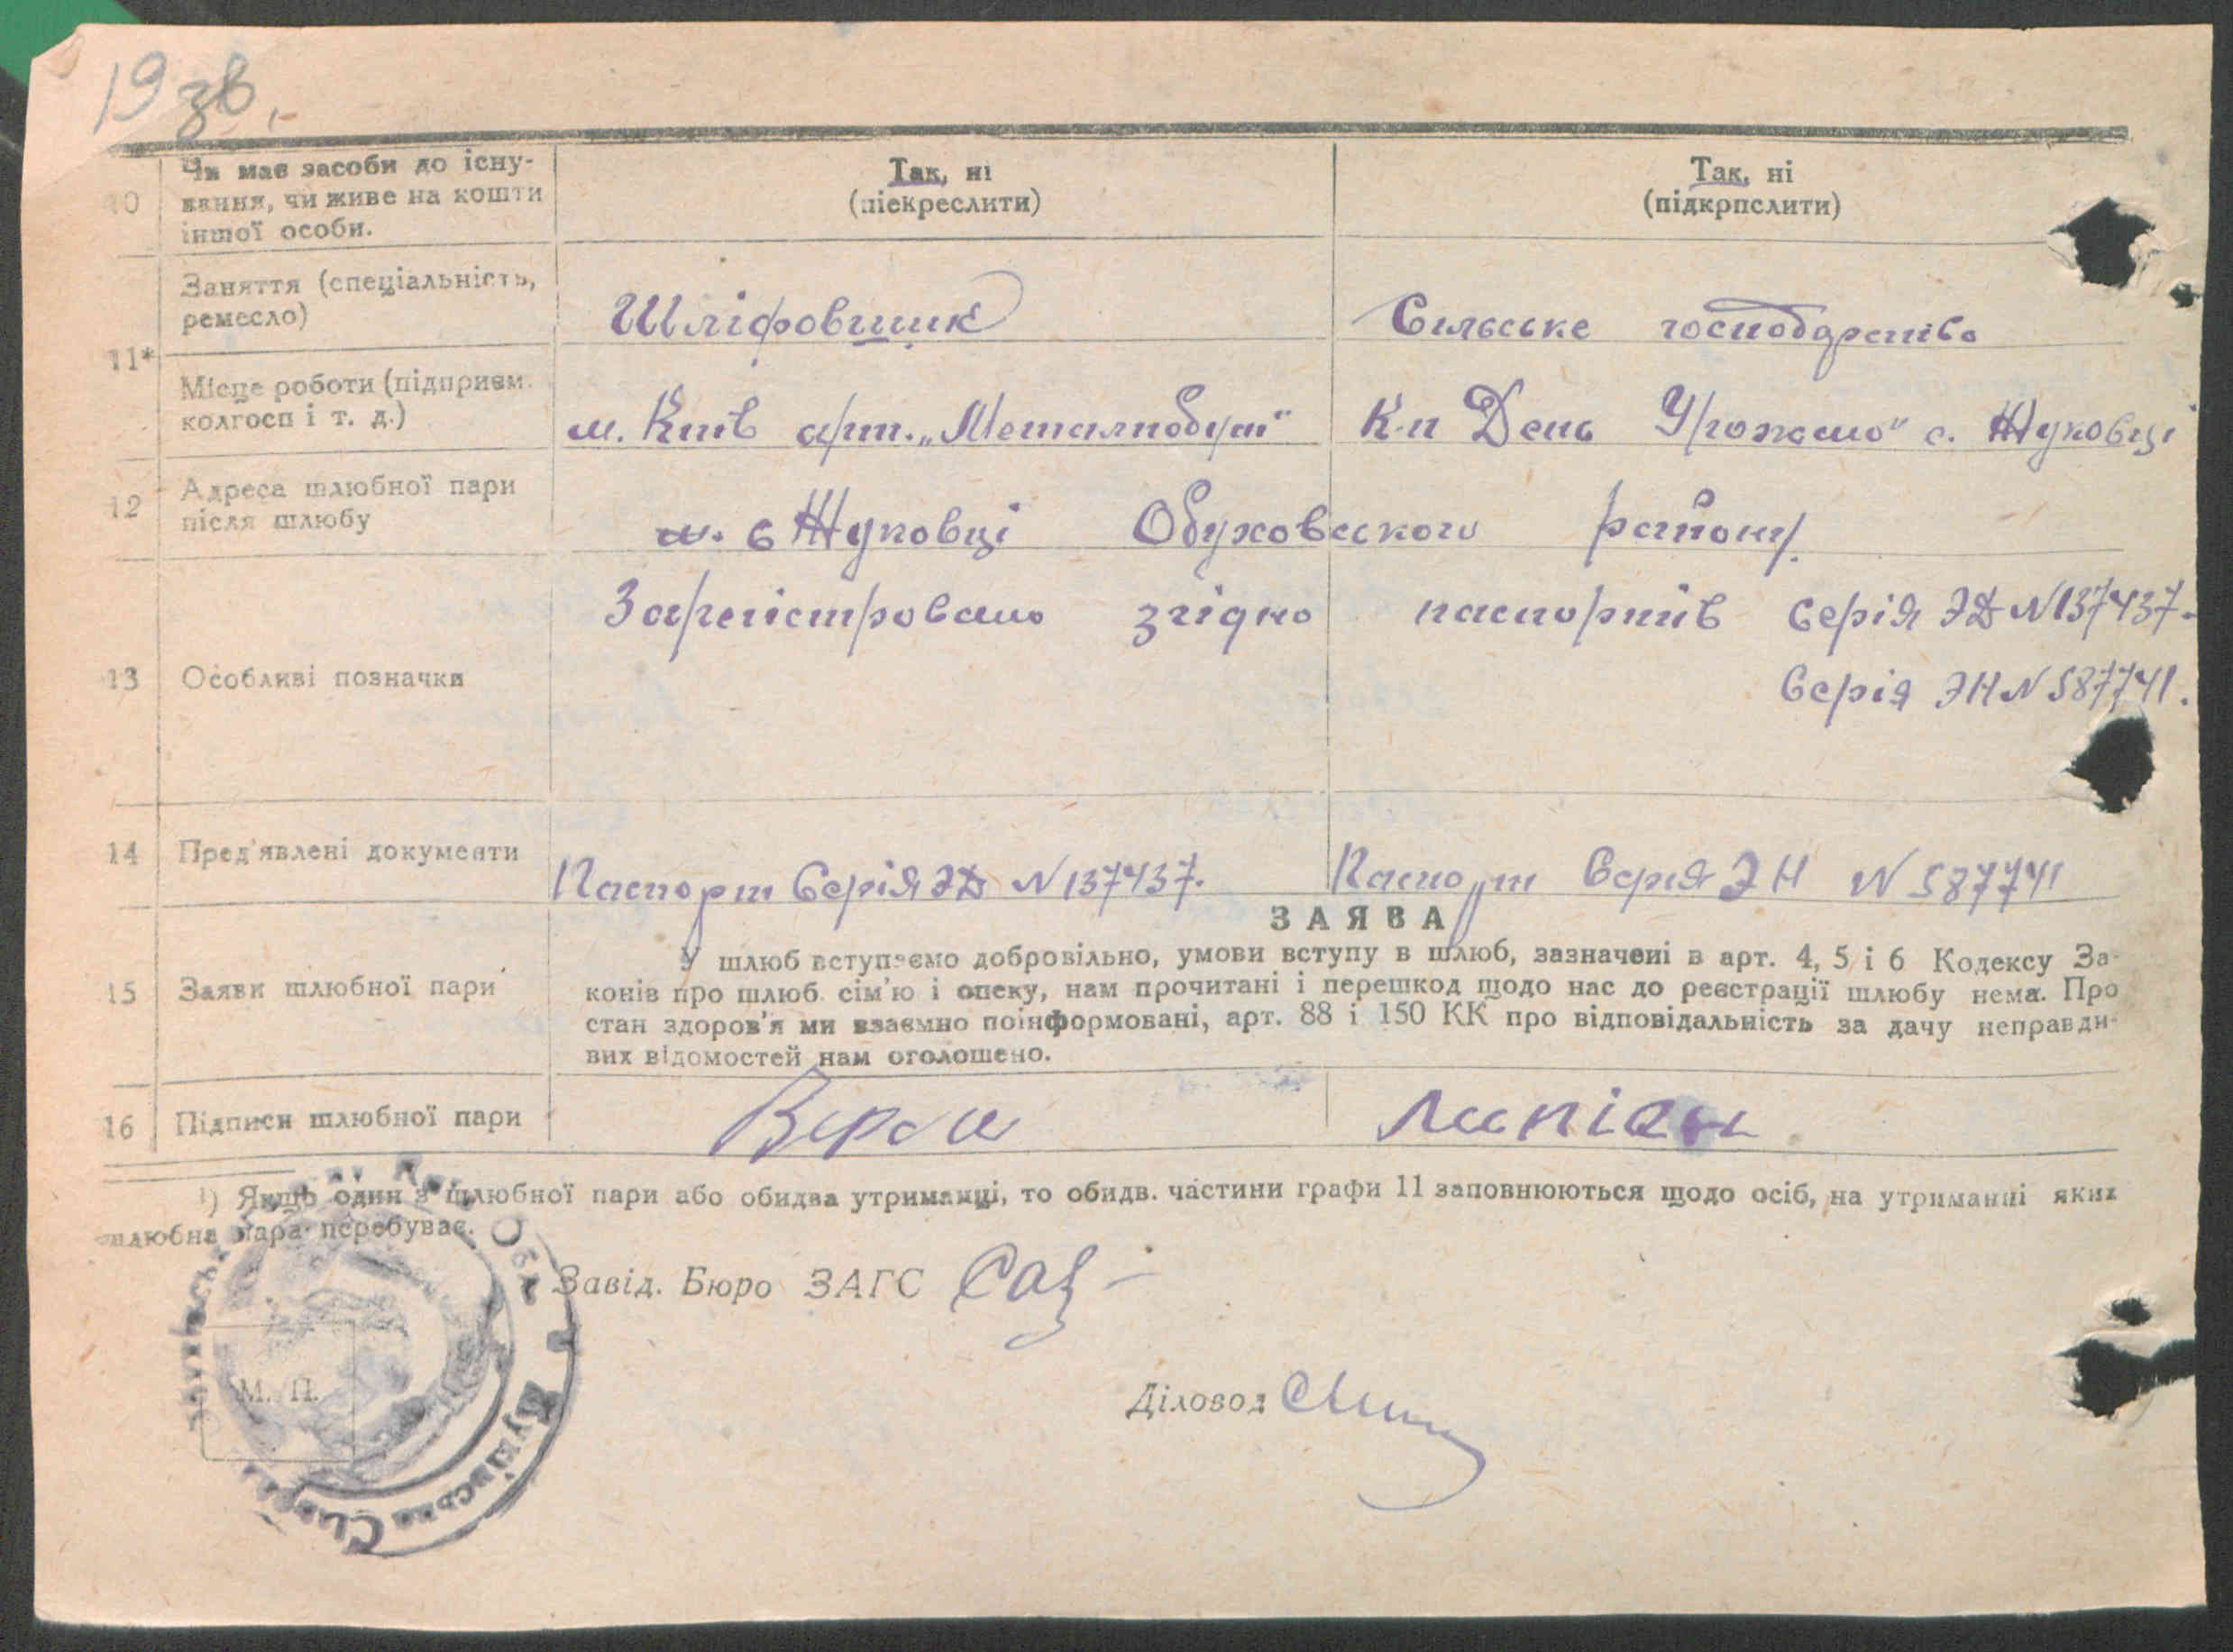 19 зв.
10 Чи має засоби до існу-
вання, чи живе на кошти
іншої особи.
Так, ні
(піекреслити)
Так, ні
(підкрпслити)
11* Заняття (спеціальність,
ремесло)
Шліфовщик
Сильське господарство
Місце роботи (підприєм.
колгосп і т. д.)
м. Київ арт. „Металпобут"
К-п День Урожаю" с. Жуковці
12 Адреса шлюбної пари
після шлюбу
с Жуковці Обуховського району.
13 Особливі позначки
Зареєстровано згідно паспортів Серія ЭД N 137437.
Серія ЭН N 587741.
14 Пред'явлені документи
Паспорт Серія ЭД N 137437.
Паспорт Серія ЭН N 587741
15 Заяви шлюбної пари
ЗАЯВА
У шлюб вступаємо добровільно, умови вступу в шлюб, зазначені в арт. 4, 5 і 6 Кодексу За-
конів про шлюб. сім'ю і опеку, нам прочитані і перешкод щодо нас до реєстрації шлюбу нема. Про
стан здоров'я ми взаємно поінформовані, арт. 88 і 150 КК про відповідальність за дачу неправди-
вих відомостей нам оголошено.
16 Підписи шлюбної пари
1) Якщо один з шлюбної пари або обидва утриманці, то обидв. частини графи 11 заповнюються щодо осіб, на утриманні яких
шлюбна пара перебуває.
Завід. Бюро ЗАГС
М. П.
Діловод